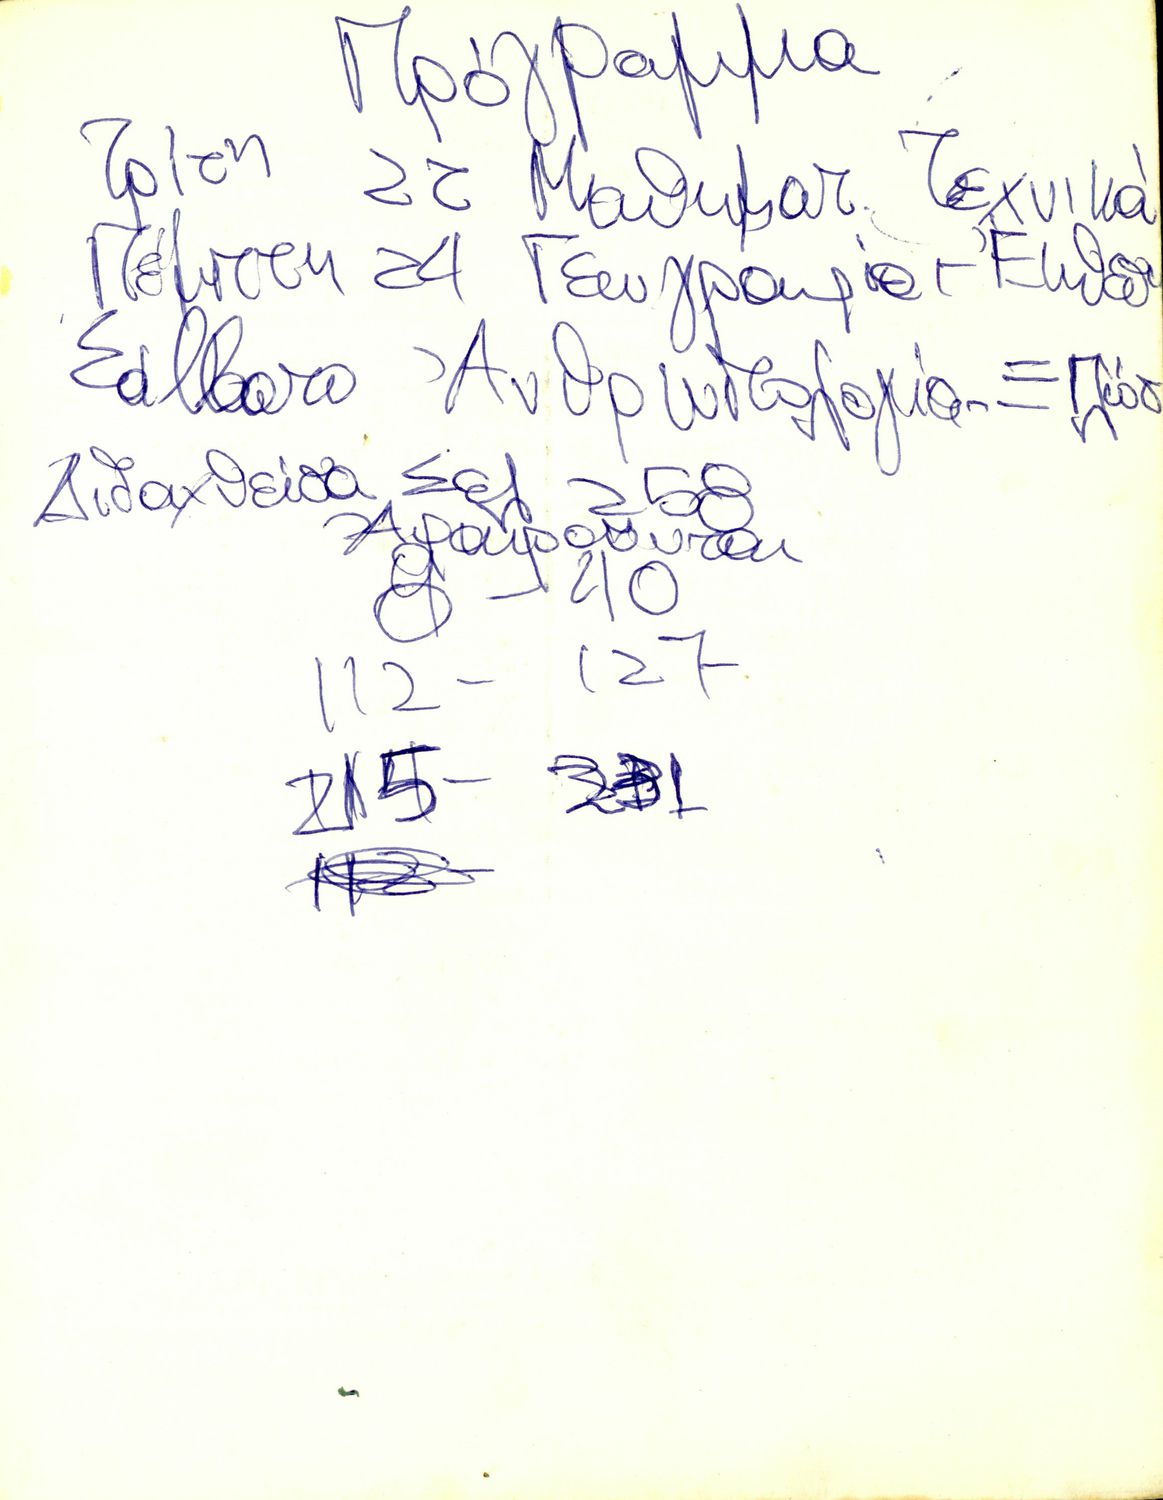 Πρόγραμμα
Τρίτη 22 Μαθηματ. Τεχνικά
Πέμπτη 24 Γεωγραφία - Ἔκθεση
Σάββατο Ἀνθρωπολογία -
Διδαχθείσα Σελ 258
Ἀφαιροῦνται
9 - 40
112 - 127
215 - 231